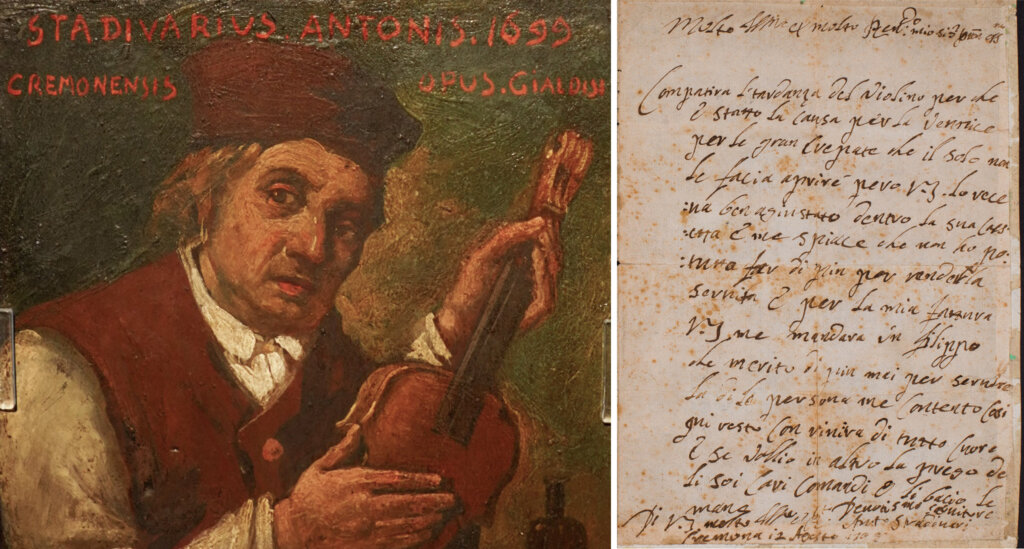 STADIVARIUS. ANTONIS. 1699
CREMONENSIS OPUS. GIALDISI
Molto et molto mio
Compatira l tardanza del Violino per che
È statto la Causa per la Vernice
per le gran Crepate che il Sole non
le facia aprire pero V.S. lo rece
:ra ben agiustato dentro la sua Cas
:etta E me spiace che non ho po:
:tutta far di piu per renderla
servita E per la mia fattura
V.S. me mandara in Filippo
che merito di piu mai per servire
la di le persona me Contento Cosi
qui resto Con di tutto Cuore
E se Vallio in altro la prego de
li Soi Cari Comandi E li bacio le
mane
Di V.S. molto servitore
Cremona 12 Agosto Ant.